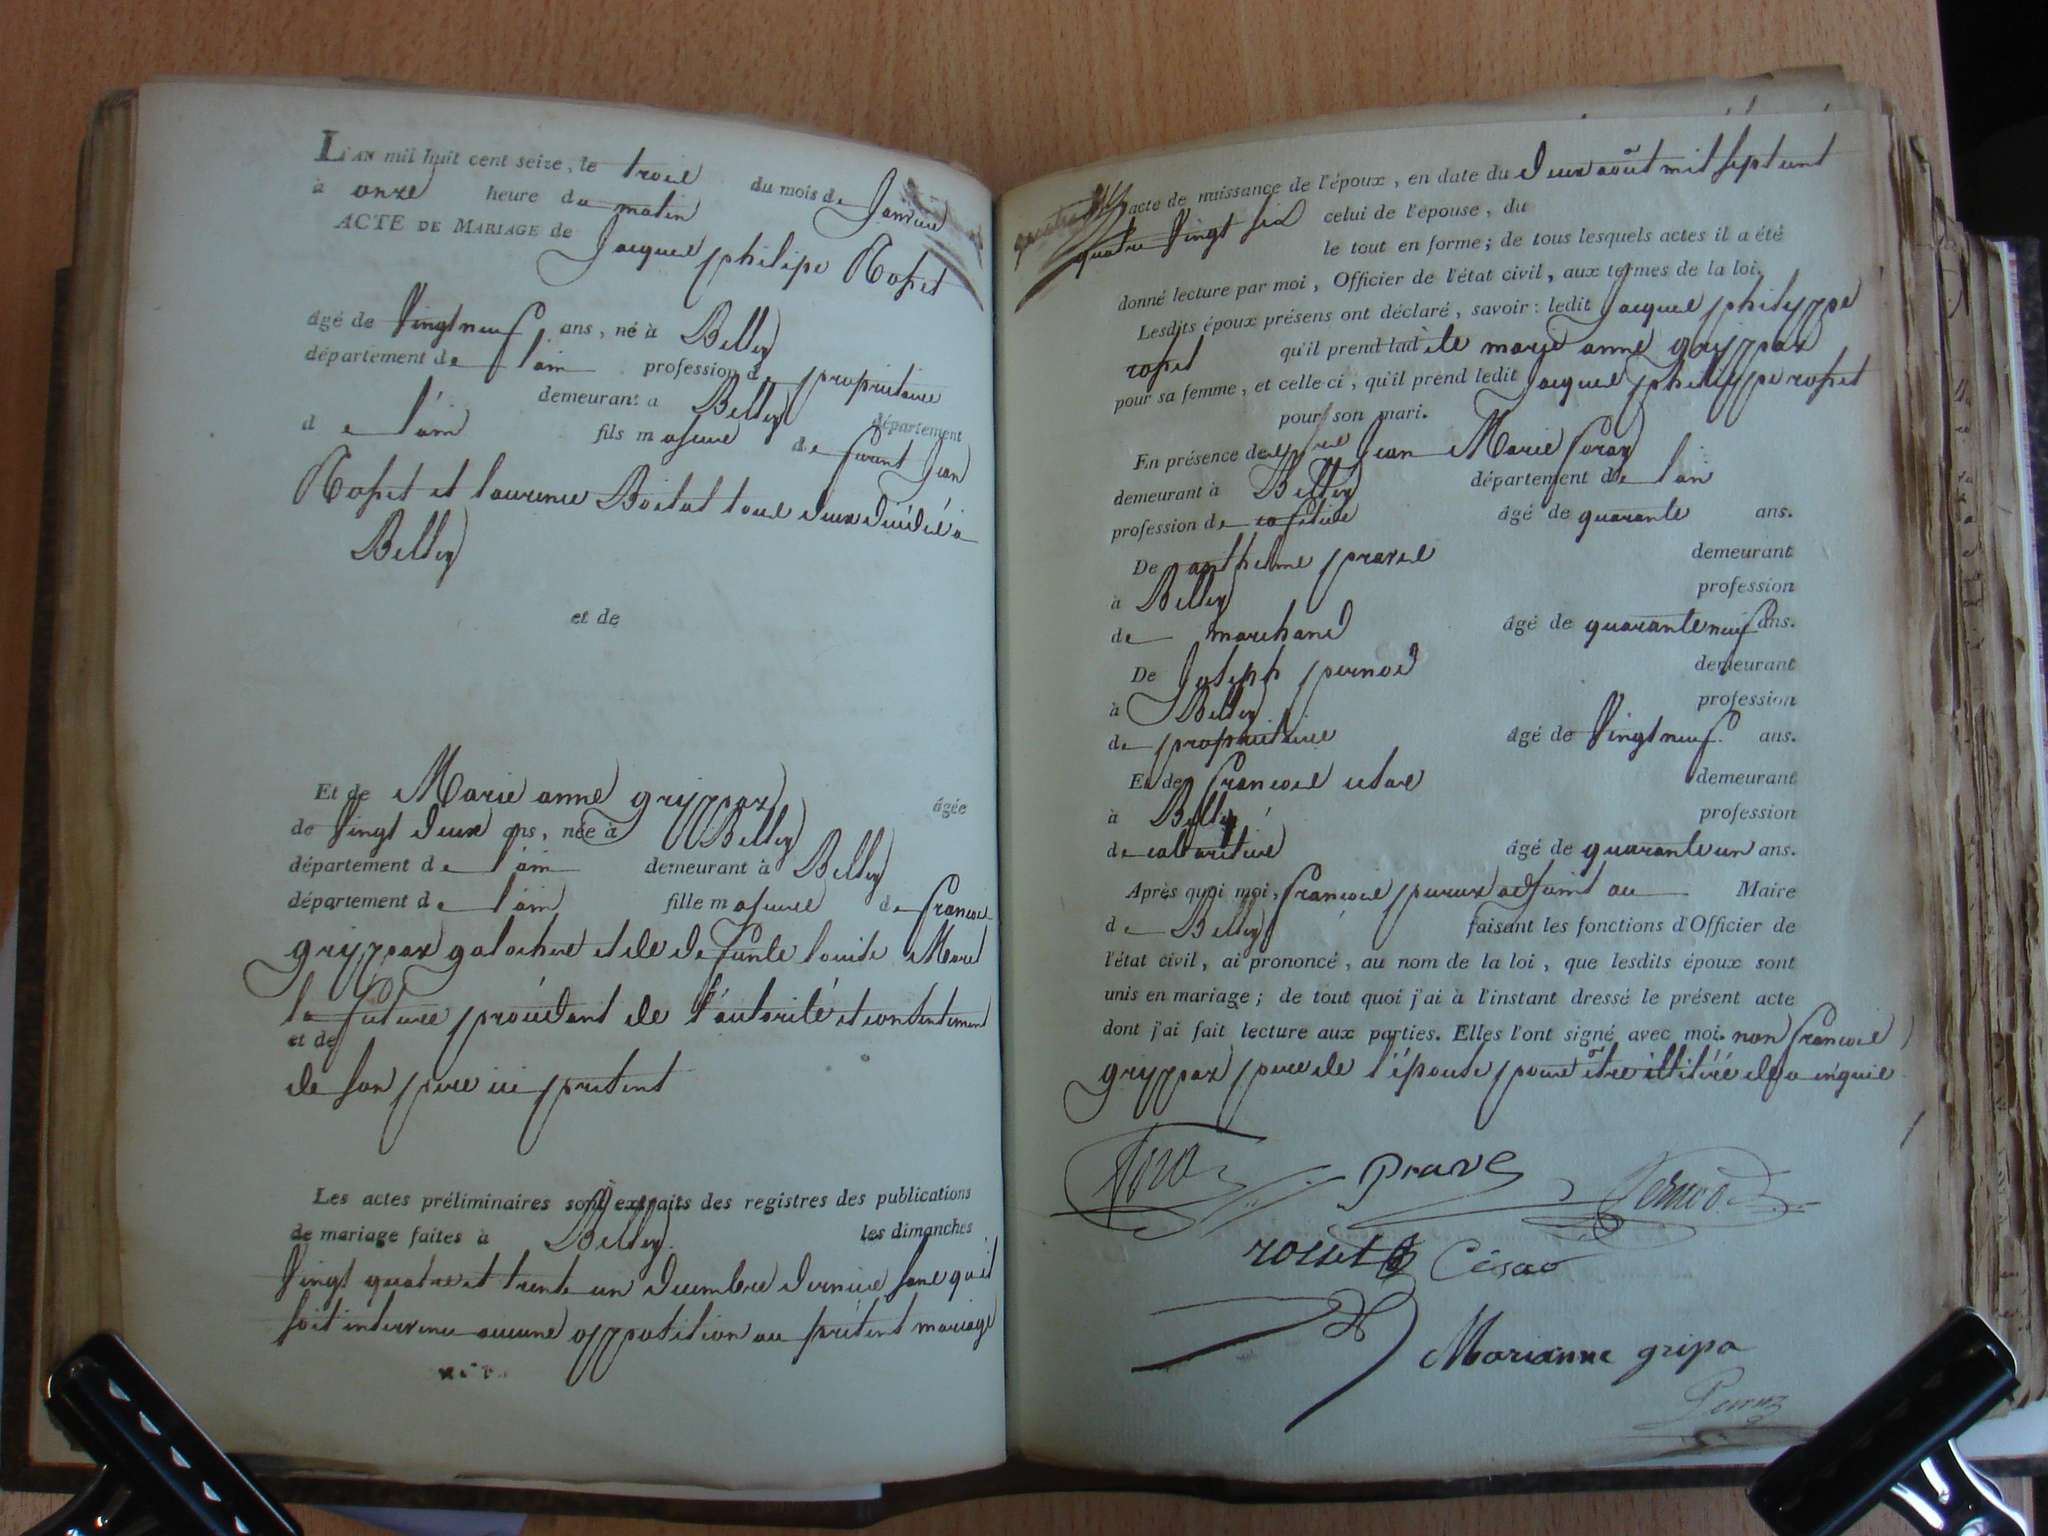 L'AN mil huit cent seize, le trois du mois de Janvier
à onze heure du matin
ACTE DE MARIAGE de Jacques philipe Rosset
âgé de Vingt neuf ans, né à Belley
département de l'ain profession de propriétaire
demeurant à Belley département
de l'ain fils majeur de feu Jean
Rosset et laurence Boitat tous deux décédés à
Belley
et de
Et de Marie anne grippaz âgée
de Vingt deux ans, née à Belley
département de l'ain demeurant à Belley
département de l'ain fille majeure de françois
grippaz galochere et de defunte louise
la future procédant de l'autorité et consentement
et de
de son pere ici présent
Les actes préliminaires sont extraits des registres des publications
de mariage faites à Belley les dimanches
Vingt quatre et trente un decembre dernier sans qu'il
soit intervenu aucune opposition au présent mariage
acte de naissance de l'époux, en date du deux août mil sept cent
quatre Vingt six celui de l'épouse, du
le tout en forme; de tous lesquels actes il a été
donné lecture par moi, Officier de l'état civil, aux termes de la loi.
Lesdits époux présens ont déclaré, savoir: ledit Jacques philippe
rosset qu'il prend ladite marie anne grippaz
pour sa femme, et celle-ci, qu'il prend ledit Jacques philippe rosset
pour son mari.
En présence de Jean Marie
demeurant à Belley département de l'ain
profession de âgé de quarante ans.
De anthelme prave demeurant
à Belley profession
de marchand âgé de quarante neuf ans.
De Joseph pernod demeurant
à Belley profession
de propriétaire âgé de Vingt neuf ans.
Et de françois demeurant
à Belley profession
de cabaretier âgé de quarante un ans.
Après quoi moi, françois adjoint au Maire
de Belley faisant les fonctions d'Officier de
l'état civil, ai prononcé, au nom de la loi, que lesdits époux sont
unis en mariage; de tout quoi j'ai à l'instant dressé le présent acte
dont j'ai fait lecture aux parties. Elles l'ont signé avec moi. non françois
grippaz pere de l'épouse pour être illitéré de a enquis
Prave
rosset Césao
Marianne gripa